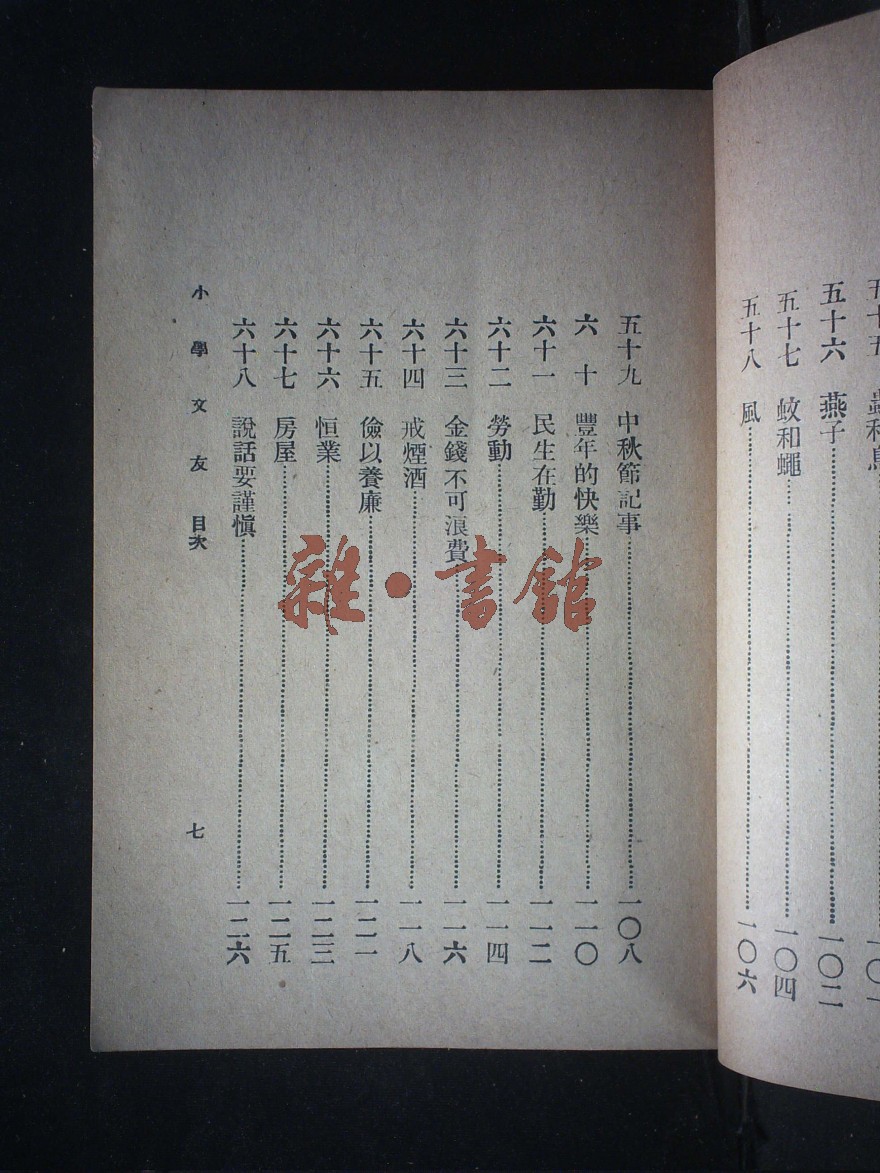 五十六　燕子……一〇二
五十七　蚊和蠅……一〇四
五十八　風……一〇六
五十九　中秋節記事……一〇八
六　十　豐年的快樂……一一〇
六十一　民生在勤……一一二
六十二　勞動……一一四
六十三　金錢不可浪費……一一六
六十四　戒煙酒……一一八
六十五　儉以養廉……一二一
六十六　恒業……一二三
六十七　房屋……一二五
六十八　說話要謹愼……一二六
小學文友　目次
七
雜·書館